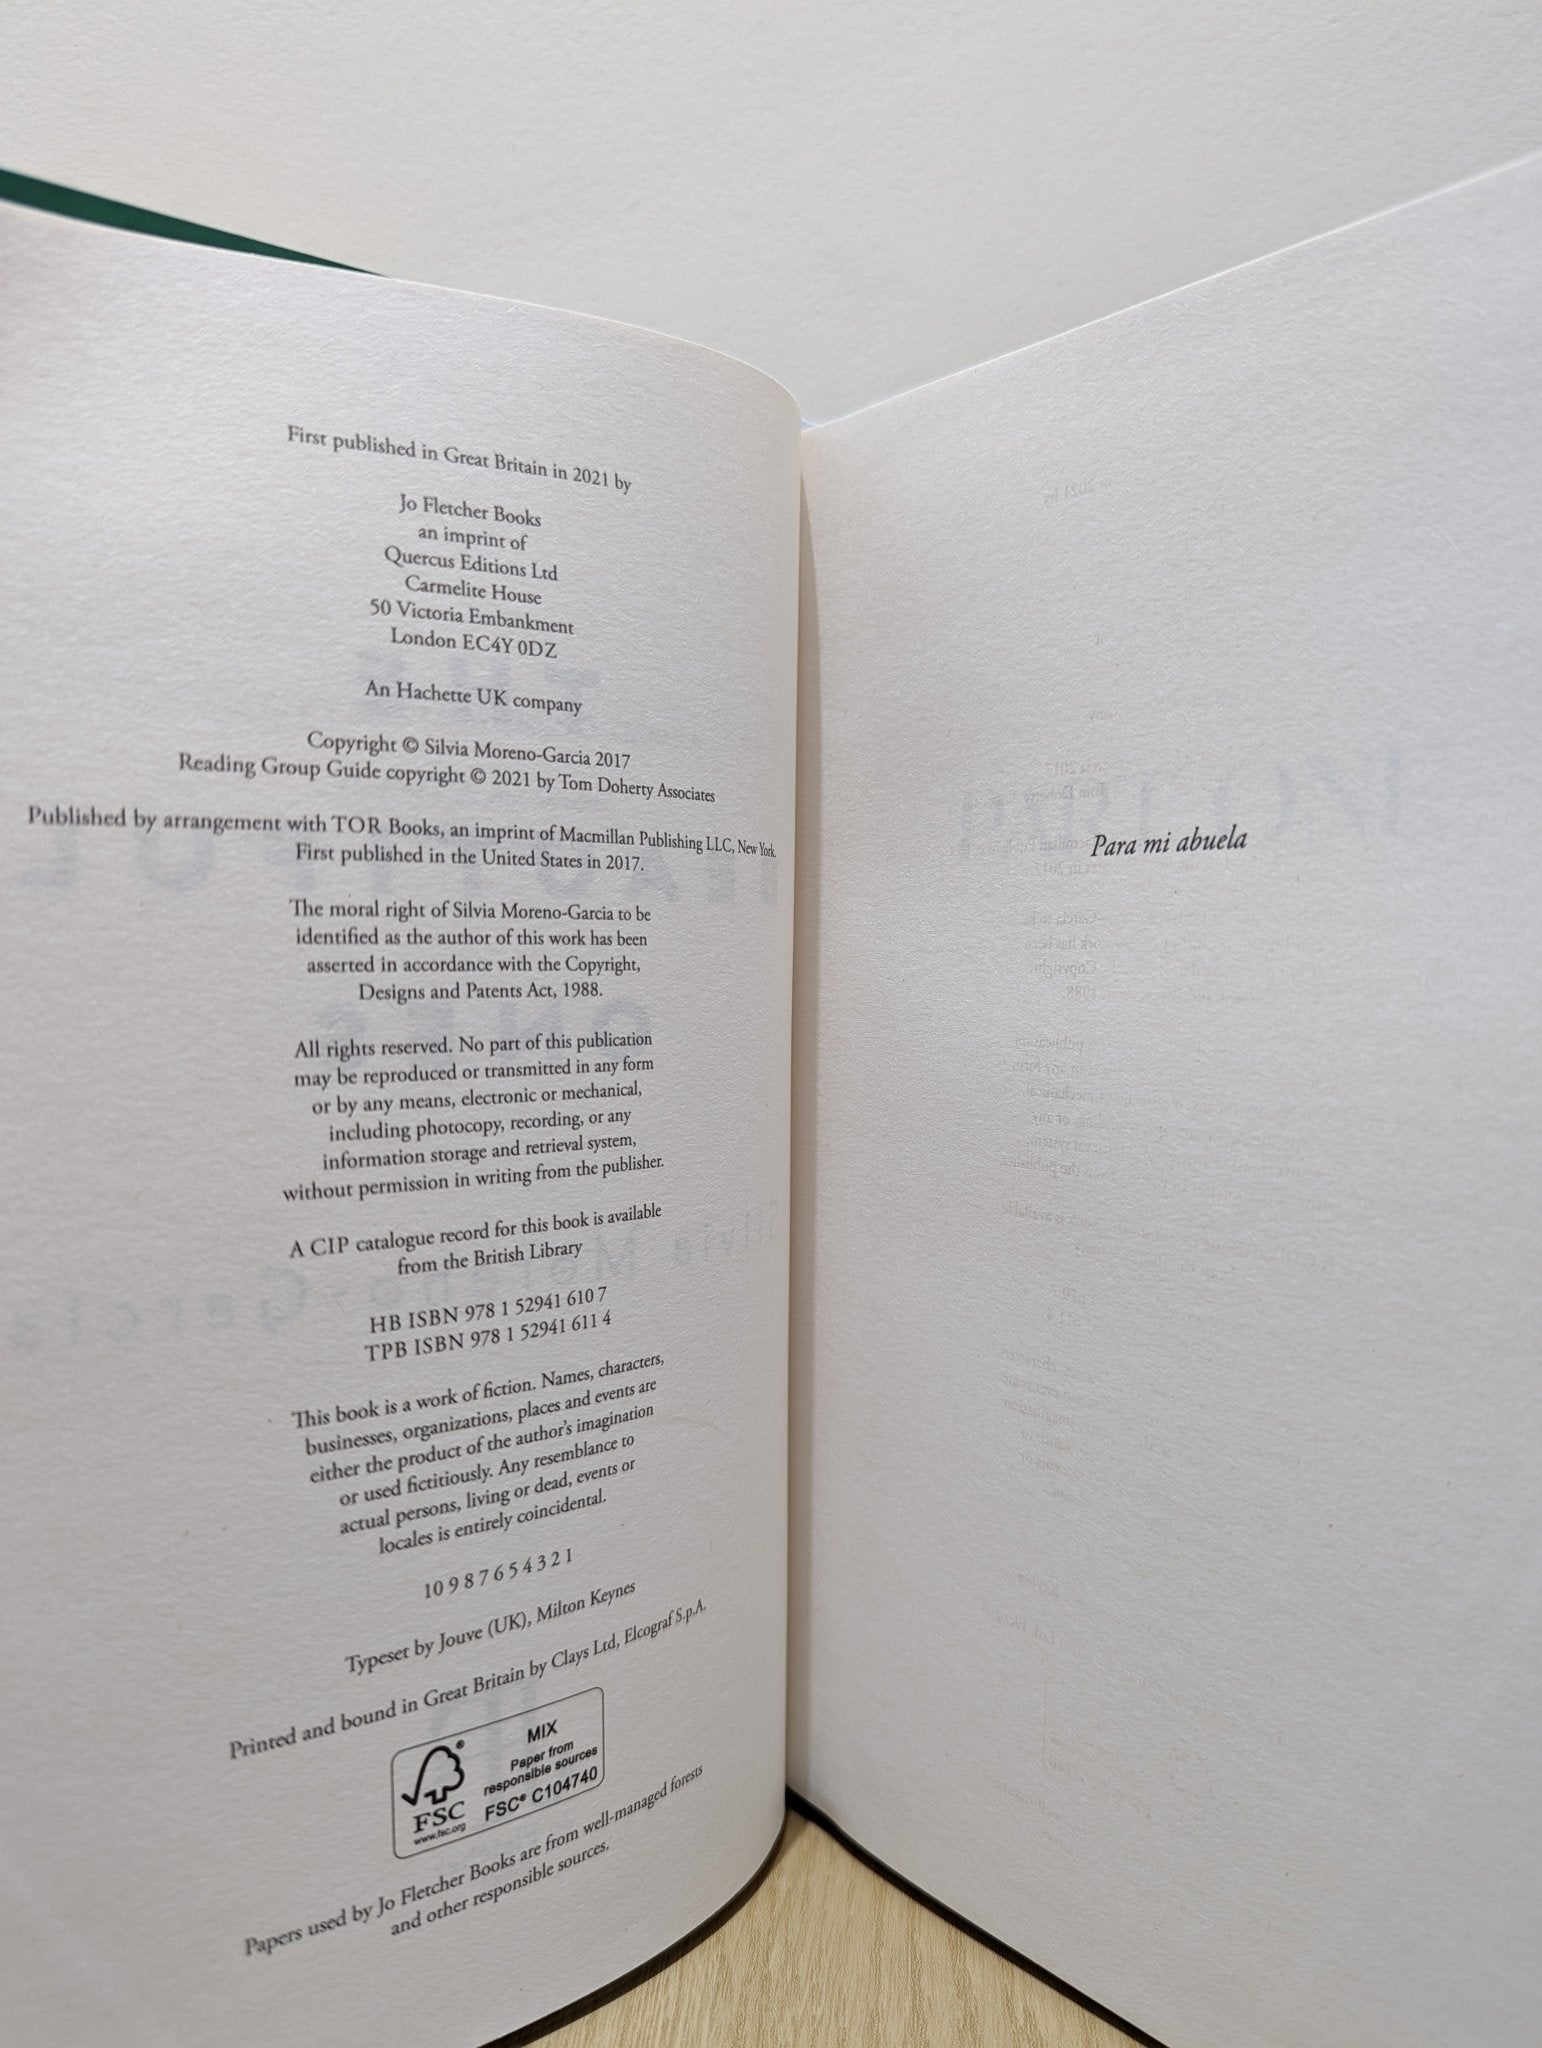 First published in Great Britain in 2021 by
Jo Fletcher Books
an imprint of
Quercus Editions Ltd
Carmelite House
50 Victoria Embankment
London EC4Y 0DZ
An Hachette UK company
Copyright © Silvia Moreno-Garcia 2017
Reading Group Guide copyright © 2021 by Tom Doherty Associates
Published by arrangement with TOR Books, an imprint of Macmillan Publishing LLC, New York.
First published in the United States in 2017.
The moral right of Silvia Moreno-Garcia to be
identified as the author of this work has been
asserted in accordance with the Copyright,
Designs and Patents Act, 1988.
All rights reserved. No part of this publication
may be reproduced or transmitted in any form
or by any means, electronic or mechanical,
including photocopy, recording, or any
information storage and retrieval system,
without permission in writing from the publisher.
A CIP catalogue record for this book is available
from the British Library
HB ISBN 978 1 52941 610 7
TPB ISBN 978 1 52941 611 4
This book is a work of fiction. Names, characters,
businesses, organizations, places and events are
either the product of the author's imagination
or used fictitiously. Any resemblance to
actual persons, living or dead, events or
locales is entirely coincidental.
10 9 8 7 6 5 4 3 2 1
Typeset by Jouve (UK), Milton Keynes
Printed and bound in Great Britain by Clays Ltd, Elcograf S.p.A.
FSC®
www.fsc.org
MIX
Paper from
responsible sources
FSC® C104740
Papers used by Jo Fletcher Books are from well-managed forests
and other responsible sources.
Para mi abuela